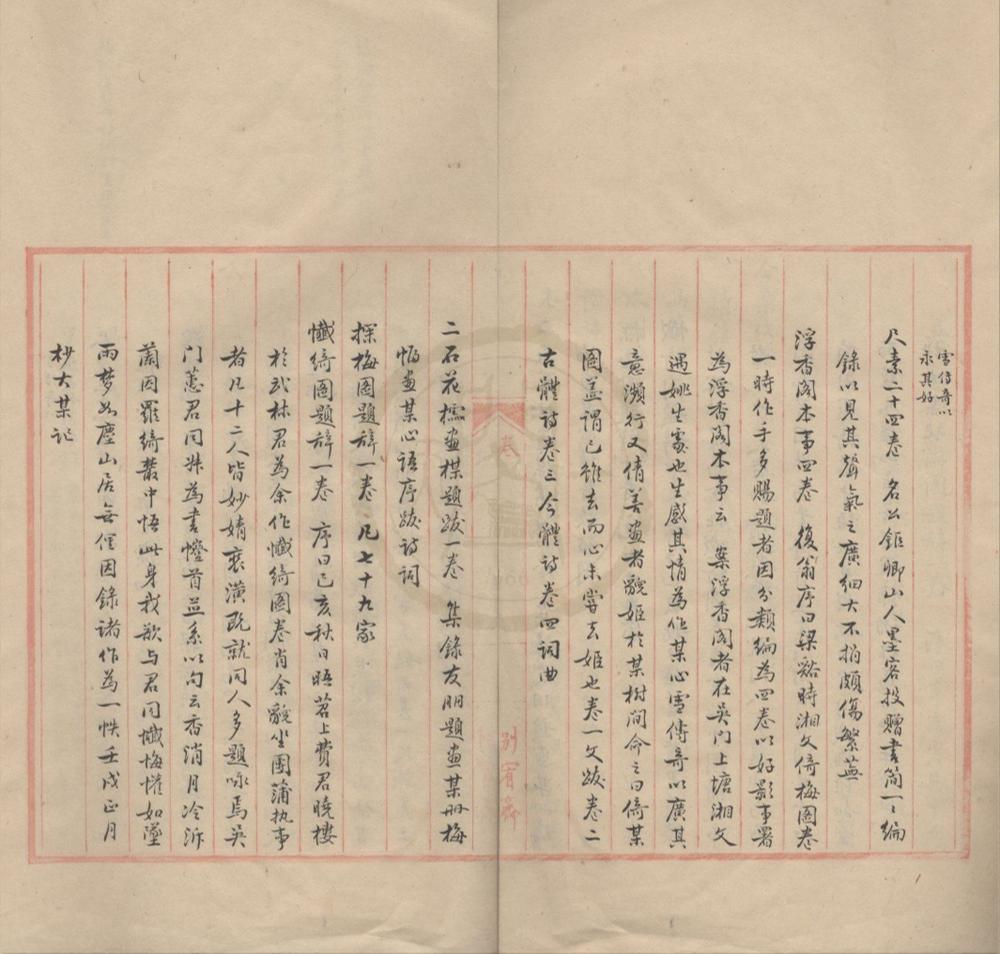 雪傳奇以
永其好
尺素二十四卷　名公鉅卿山人墨客投贈書簡一一編
錄以見其聲氣之廣細大不捐頗傷繁蕪
浮香閣本事四卷　復翁序曰梁谿時湘文倚梅圖卷
一時作手多賜題者因分類編為四卷以好影事署
為浮香閣本事云　案浮香閣者在吳門上塘湘文
遇姚生處也生感其情為作某心雪傳奇以廣其
意瀕行又倩善畫者貌姬於某樹間命之曰倚某
圖蓋謂已雖去而心未嘗去姬也卷一文跋卷二
古體詩卷三今體詩卷四詞曲
二石花櫺畫楳題跋一卷　集錄友朋題畫某冊梅
幅畫某心語序跋詩詞
探梅圖題辭一卷　凡七十九家
懺綺圖題辭一卷　序曰己亥秋日晤苕上費君曉樓
於武林君為余作懺綺圖卷肖余貌坐團蒲執事
者凡十二人皆妙婧裝潢既就同人多題咏焉吳
門蕙君同妹為書幨首並系以句云香消月冷泝
蘭因羅綺叢中悟此身我欲與君同懺悔慬如墮
雨夢如塵山居無俚因錄諸作為一帙壬戌正月
杪大某記
卷
別宥齋